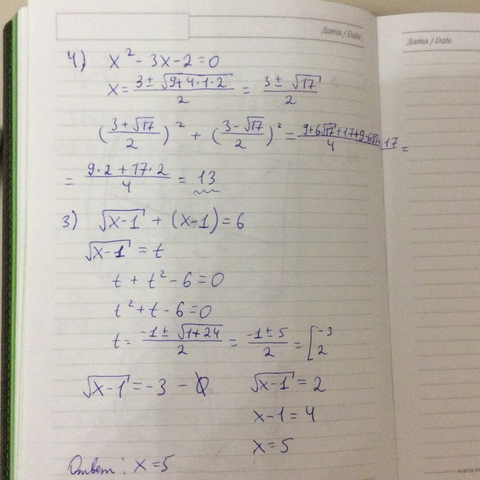 Дата / Date
Дата / Date
4) x² - 3x - 2 = 0
x = (3 ± √(9+4·1·2))/2 = (3 ± √17)/2
((3+√17)/2)² + ((3-√17)/2)² = (9+6√17+17+9-6√17+17)/4 =
= (9·2+17·2)/4 = 13
3) √(x-1) + (x-1) = 6
√(x-1) = t
t + t² - 6 = 0
t² + t - 6 = 0
t = (-1 ± √(1+24))/2 = (-1 ± 5)/2 = [-3
2
√(x-1) = -3 - Ø √(x-1) = 2
x-1 = 4
x = 5
Ответ: x = 5